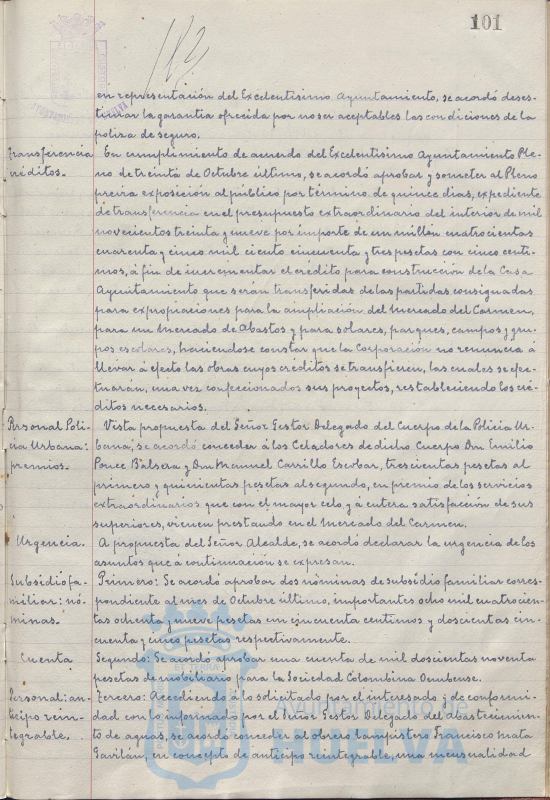 101
en representación del Excelentisimo Ayuntamiento, se acordó deses-
timar la garantia ofrecida por no ser aceptables las condiciones de la
poliza de seguro.
Transferencia créditos.
En cumplimiento de acuerdo del Excelentisimo Ayuntamiento Ple-
no de treinta de Octubre último, se acordó aprobar y someter al Pleno
previa exposición al público por término de quince dias, expediente
de transferencia en el presupuesto extraordinario del interior de mil
novecientos treinta y nueve por importe de un millón cuatrocientas
cuarenta y cinco mil ciento cincuenta y tres pesetas con cinco centi-
mos, á fin de incrementar el crédito para construcción de la Casa
Ayuntamiento que serán transferidas de las partidas consignadas
para expropiaciones para la ampliación del Mercado del Carmen,
para un Mercado de Abastos y para solares, parques, campos y gru-
pos escolares, haciendose constar que la Corporación no renuncia á
llevar á efecto las obras cuyos créditos se transfieren, las cuales se efec-
tuarán, una vez confeccionados sus proyectos, restableciendo los cré-
ditos necesarios.
Personal Poli-
cia Urbana:
premios.
Vista propuesta del Señor Gestor Delegado del Cuerpo de la Policia Ur-
bana, se acordó conceder á los Celadores de dicho Cuerpo Don Emilio
Ponce Balsera y Don Manuel Carrillo Escobar, trescientas pesetas al
primero y quinientas pesetas al segundo, en premio de los servicios
extraordinarios que con el mayor celo y á entera satisfacción de sus
superiores, vienen prestando en el Mercado del Carmen.
Urgencia.
A propuesta del Señor Alcalde, se acordó declarar la urgencia de los
asuntos que á continuación se expresan.
Subsidio fa-
miliar: nó-
minas.
Primero: Se acordó aprobar dos nóminas de subsidio familiar corres-
pondiente al mes de Octubre último, importantes ocho mil cuatrocien-
tas ochenta y nueve pesetas con cincuenta centimos y doscientas cin-
cuenta y cinco pesetas respectivamente.
Cuenta
Segundo: Se acordó aprobar una cuenta de mil doscientas noventa
pesetas de mobiliario para la Sociedad Colombina Onubense.
Personal: an-
ticipo rein-
tegrable.
Tercero: Accediendo á lo solicitado por el interesado y de conformi-
dad con lo informado por el Señor Gestor Delegado del abastecimien-
to de aguas, se acordó conceder al obrero lampistero Francisco Mata
Gavilan, en concepto de anticipo reintegrable, una mensualidad
Ayuntamiento de
HUELVA